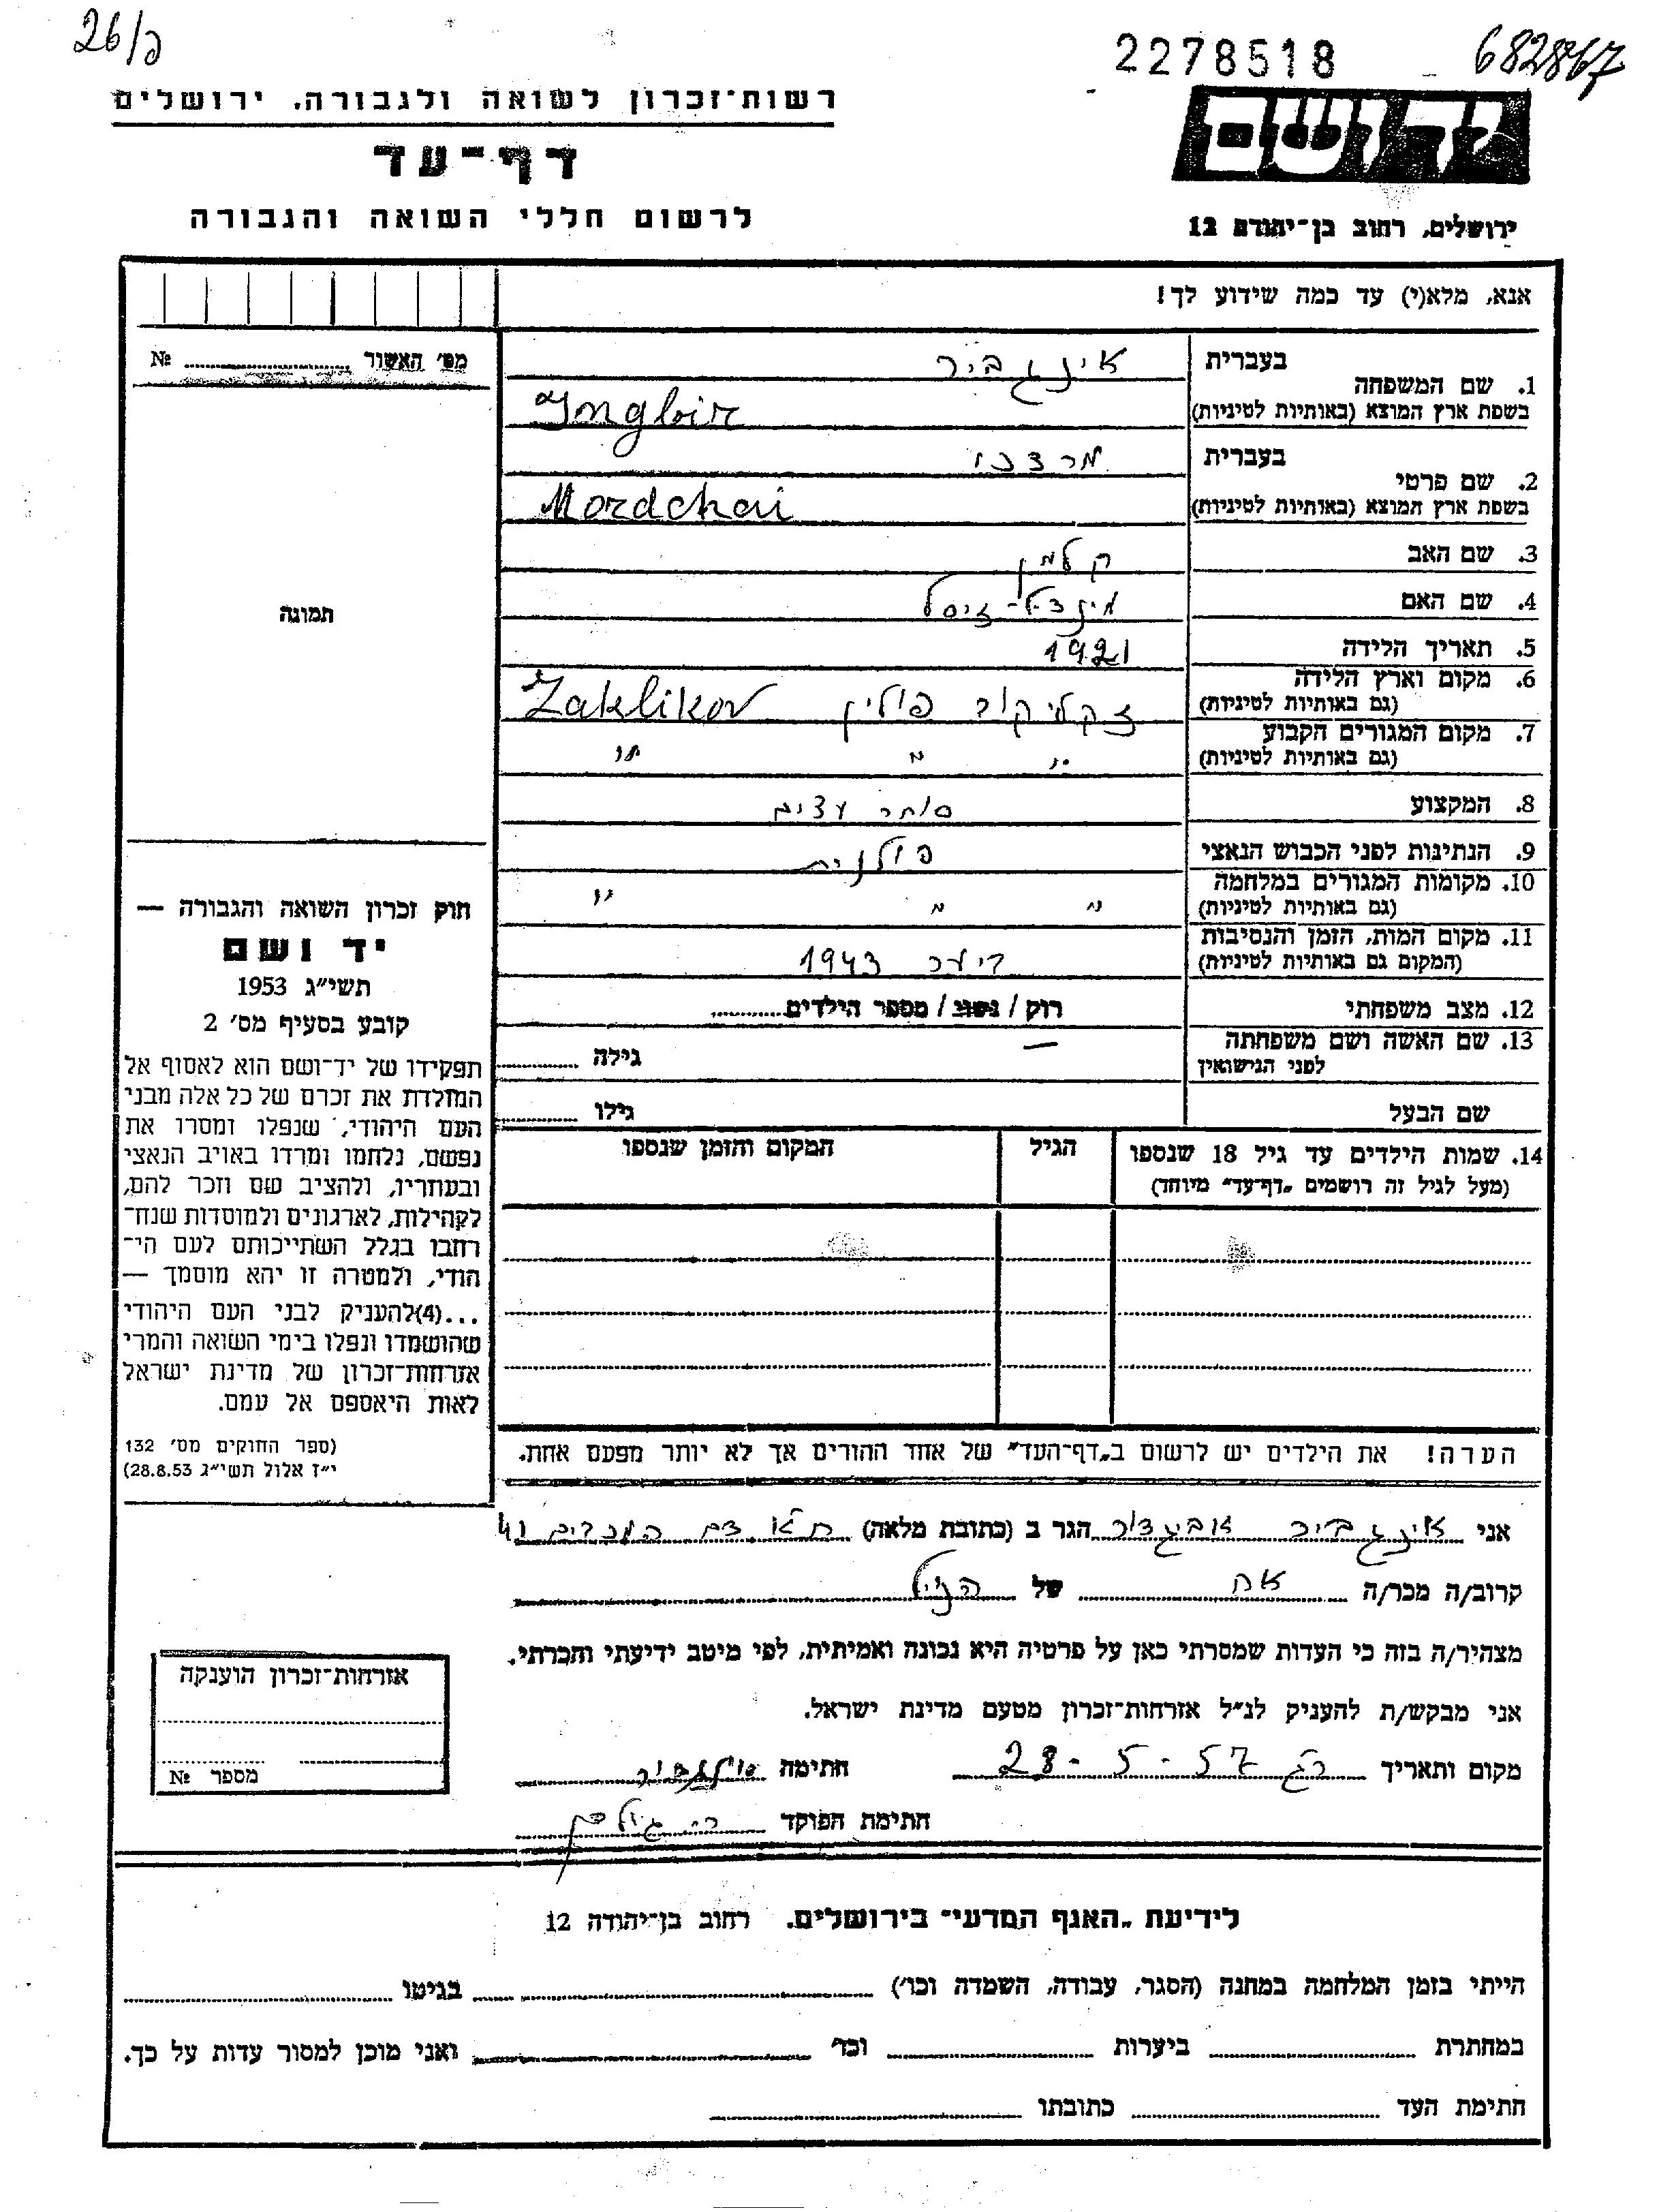 26/כ
2278518
682867
רשות־זכרון לשואה ולגבורה, ירושלים
דף־עד
לרשום חללי השואה והגבורה
יד ושם
ירושלים, רחוב בן־יהודה 12
אנא, מלא(י) עד כמה שידוע לך!
מס׳ האשור ........ №
1. שם המשפחה
בעברית אינגביר
בשפת ארץ המוצא (באותיות לטיניות) Ingbir
2. שם פרטי
בעברית מרדכי
בשפת ארץ המוצא (באותיות לטיניות) Mordchai
3. שם האב קלמן
4. שם האם מינדל-זיסל
5. תאריך הלידה 1921
6. מקום וארץ הלידה זקליקוב פולין Zaklikov
(גם באותיות לטיניות)
7. מקום המגורים הקבוע " " "
(גם באותיות לטיניות)
8. המקצוע סוחר עצים
9. הנתינות לפני הכבוש הנאצי פולנית
10. מקומות המגורים במלחמה " " "
(גם באותיות לטיניות)
11. מקום המות, הזמן והנסיבות 1943
(המקום גם באותיות לטיניות)
12. מצב משפחתי רוק / נשוי / מספר הילדים........
13. שם האשה ושם משפחתה — גילה ........
לפני הנישואין
שם הבעל גילו ........
14. שמות הילדים עד גיל 18 שנספו
(מעל לגיל זה רושמים „דף־עד" מיוחד)
הגיל
המקום והזמן שנספו
הערה! את הילדים יש לרשום ב„דף־העד" של אחד ההורים אך לא יותר מפעם אחת.
תמונה
חוק זכרון השואה והגבורה —
יד ושם
תשי"ג 1953
קובע בסעיף מס׳ 2
תפקידו של יד־ושם הוא לאסוף אל
המולדת את זכרם של כל אלה מבני
העם היהודי, שנפלו ומסרו את
נפשם, נלחמו ומרדו באויב הנאצי
ובעוזריו, ולהציב שם וזכר להם,
לקהילות, לארגונים ולמוסדות שנח־
רחבו בגלל השתייכותם לעם הי־
הודי, ולמטרה זו יהא מוסמך —
...(4)להעניק לבני העם היהודי
שהושמדו ונפלו בימי השואה והמרי
אזרחות־זכרון של מדינת ישראל
לאות היאספם אל עמם.
(ספר החוקים מס׳ 132
י"ז אלול תשי"ג 28.8.53)
אני אינגביר אביגדור הגר ב (כתובת מלאה) ת"א המכבים 41
קרוב/ה מכר/ה אח של הנ"ל
מצהיר/ה בזה כי העדות שמסרתי כאן על פרטיה היא נכונה ואמיתית, לפי מיטב ידיעתי והכרתי.
אני מבקש/ת להעניק לנ"ל אזרחות־זכרון מטעם מדינת ישראל.
מקום ותאריך רג 23-5-57 חתימה אינגביר
חתימת הפוקד
אזרחות־זכרון הוענקה
מספר №
לידיעת „האגף המדעי" בירושלים. רחוב בן־יהודה 12
הייתי בזמן המלחמה במחנה (הסגר, עבודה, השמדה וכו׳) ........ בגיטו ........
במחתרת ........ ביערות ........ וכו׳ ........ ואני מוכן למסור עדות על כך.
חתימת העד ........ כתובתו ........